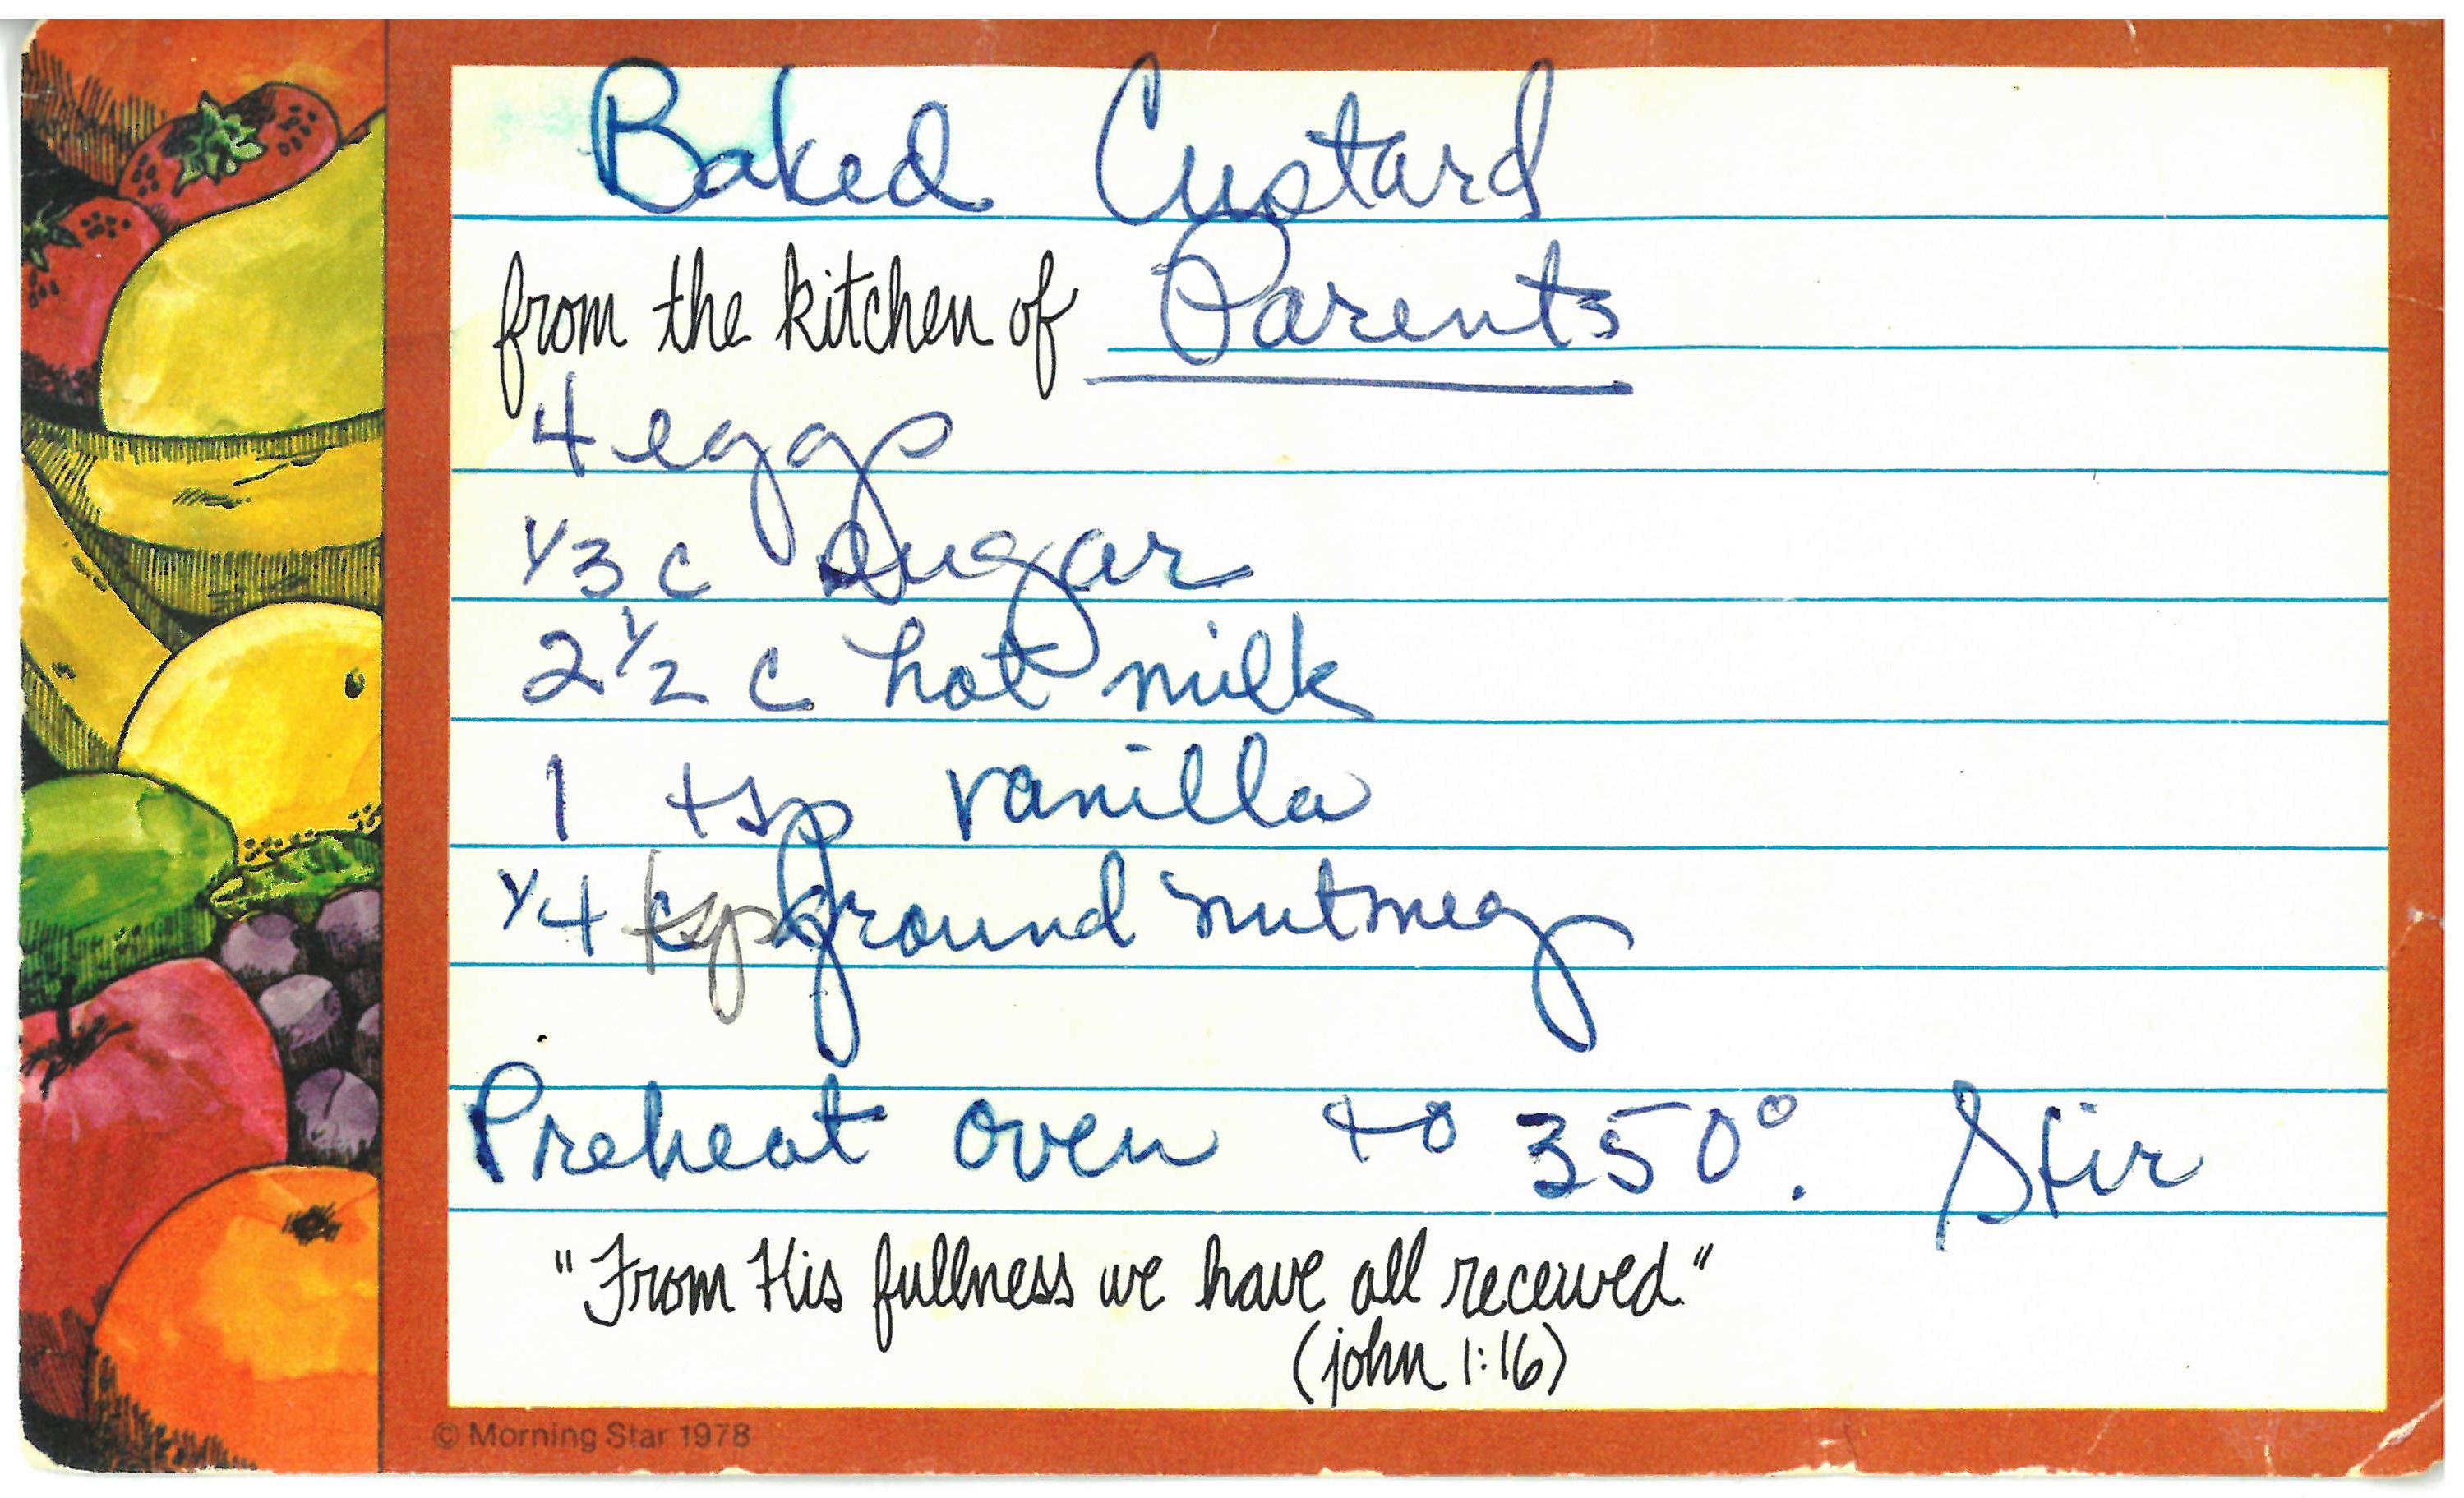 Baked Custard
from the kitchen of Parents
4 eggs
1/3 c sugar
2 1/2 c hot milk
1 tsp vanilla
1/4 tsp ground nutmeg
Preheat oven to 350°. Stir
"From His fullness we have all received"
(john 1:16)
© Morning Star 1978